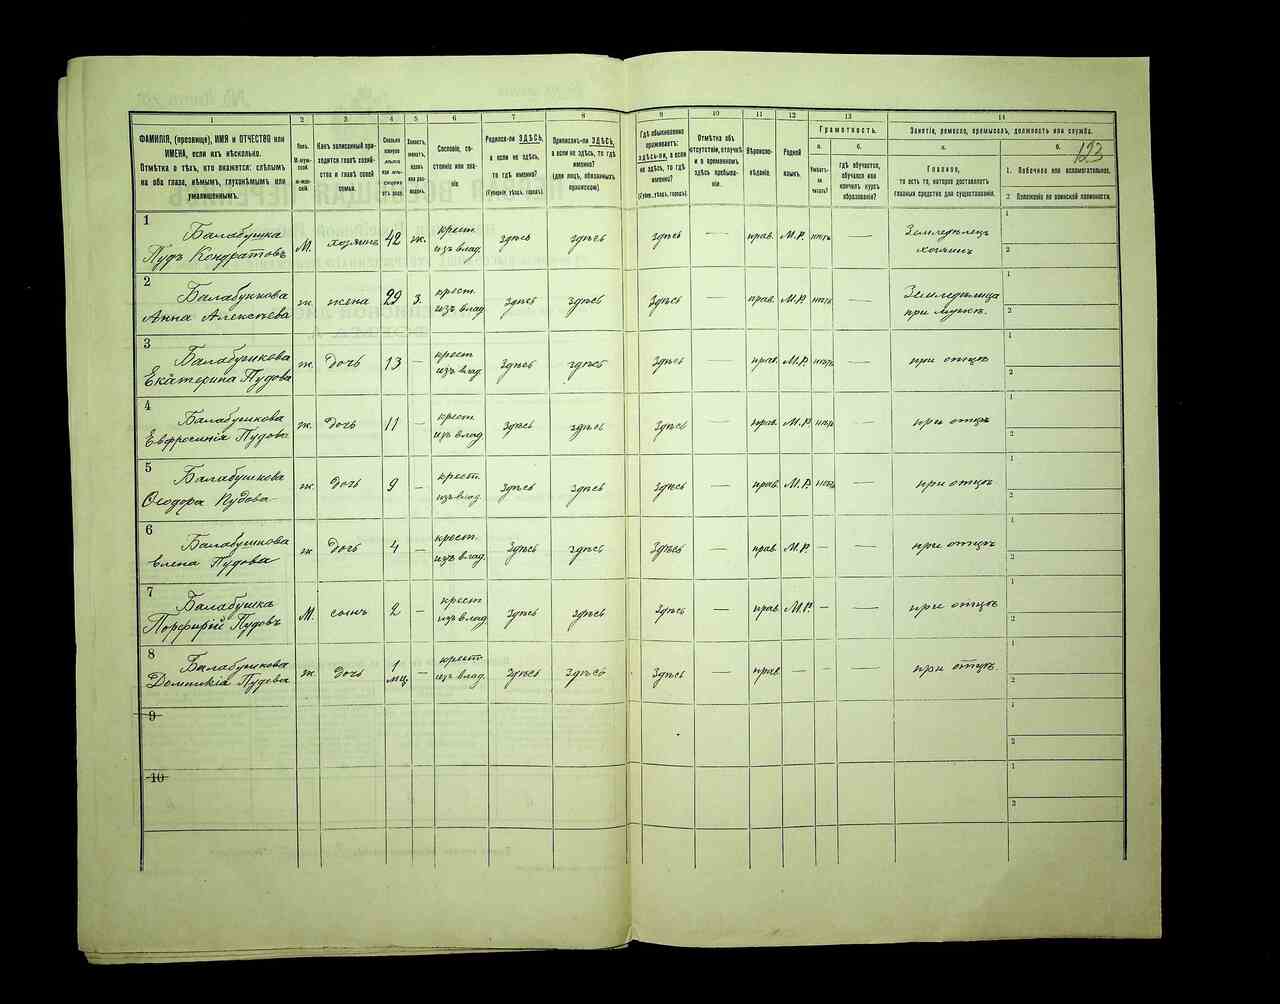 123
1 2 3 4 5 6 7 8 9 10 11 12 13 14
ФАМИЛІЯ, (прозвище), ИМЯ и ОТЧЕСТВО или
ИМЕНА, если ихъ нѣсколько.
Отмѣтка о тѣхъ, кто окажется: слѣпымъ
на оба глаза, нѣмымъ, глухонѣмымъ или
умалишеннымъ.
Полъ.
М-муж-
ской.
Ж-жен-
скій.
Какъ записанный при-
ходится главѣ хозяй-
ства и главѣ своей
семьи.
Сколько
минуло
лѣтъ
или мѣ-
сяцевъ
отъ роду.
Холостъ,
женатъ,
вдовъ
или раз-
веденъ.
Сословіе, со-
стояніе или зва-
ніе
Родился-ли ЗДѢСЬ,
а если не здѣсь,
то гдѣ именно?
(Губернія, уѣздъ, городъ).
Приписанъ-ли ЗДѢСЬ,
а если не здѣсь, то гдѣ
именно?
(для лицъ, обязанныхъ
припискою).
Гдѣ обыкновенно
проживаетъ:
здѣсь-ли, а если
не здѣсь, то гдѣ
именно?
(Губерн., уѣздъ, городъ).
Отмѣтка объ
отсутствіи, отлучкѣ
и о временномъ
здѣсь пребыва-
ніи.
Вѣроиспо-
вѣданіе.
Родной
языкъ.
Грамотность.
а.
Умѣетъ-
ли
читать?
б.
Гдѣ обучается,
обучался или
кончилъ курсъ
образованія?
Занятіе, ремесло, промыселъ, должность или служба.
а.
Главное,
то есть то, которое доставляетъ
главныя средства для существованія.
б.
1. Побочное или вспомогательное.
2. Положеніе по воинской повинности.
1 Балабушка Пудъ Кондратовъ М. хозяинъ 42 ж. крест. изъ влад. здѣсь здѣсь здѣсь — прав. М.Р. нѣтъ — Земледѣлецъ хозяинъ 1 2
2 Балабушкова Анна Алексѣева ж. жена 29 З. крест. изъ влад. здѣсь здѣсь здѣсь — прав. М.Р. нѣтъ — Земледѣлица при мужѣ. 1 2
3 Балабушкова Екатерина Пудова ж. дочь 13 — крест. изъ влад. здѣсь здѣсь здѣсь — прав. М.Р. нѣтъ — при отцѣ 1 2
4 Балабушкова Евфросинія Пудова ж. дочь 11 — крест. изъ влад. здѣсь здѣсь здѣсь — прав. М.Р. нѣтъ — при отцѣ 1 2
5 Балабушкова Ѳеодора Пудова ж. дочь 9 — крест. изъ влад. здѣсь здѣсь здѣсь — прав. М.Р. нѣтъ — при отцѣ 1 2
6 Балабушкова Елена Пудова ж. дочь 4 — крест. изъ влад. здѣсь здѣсь здѣсь — прав. М.Р. — — при отцѣ 1 2
7 Балабушка Порфирій Пудовъ М. сынъ 2 — крест. изъ влад. здѣсь здѣсь здѣсь — прав. М.Р. — — при отцѣ 1 2
8 Балабушкова Домникія Пудова ж. дочь 1 мц. — крест. изъ влад. здѣсь здѣсь здѣсь — прав. — — — при отцѣ. 1 2
9 1 2
10 1 2